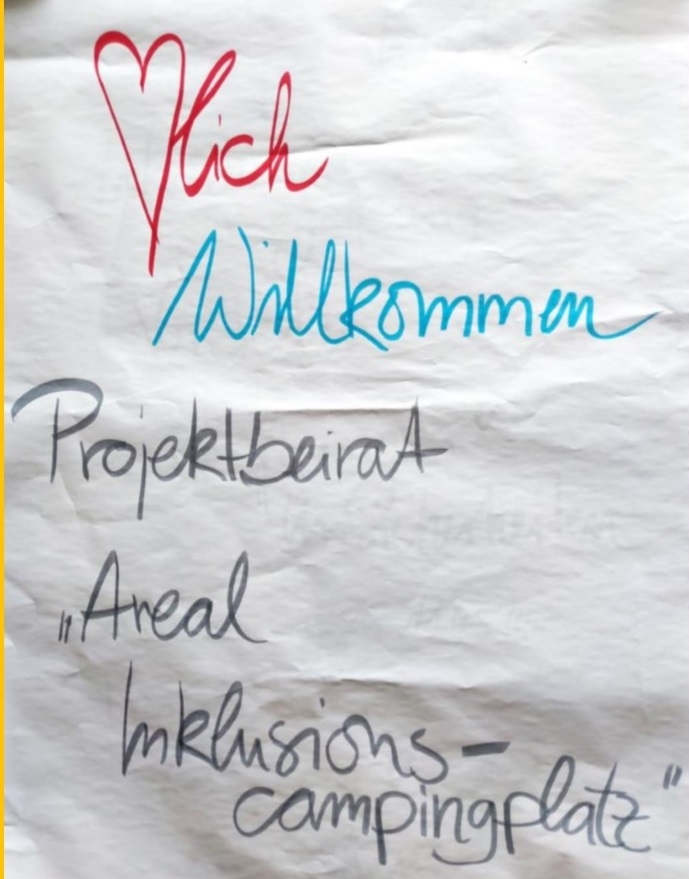 ♥lich
Willkommen
Projektbeirat
„Areal
Inklusions-
campingplatz"